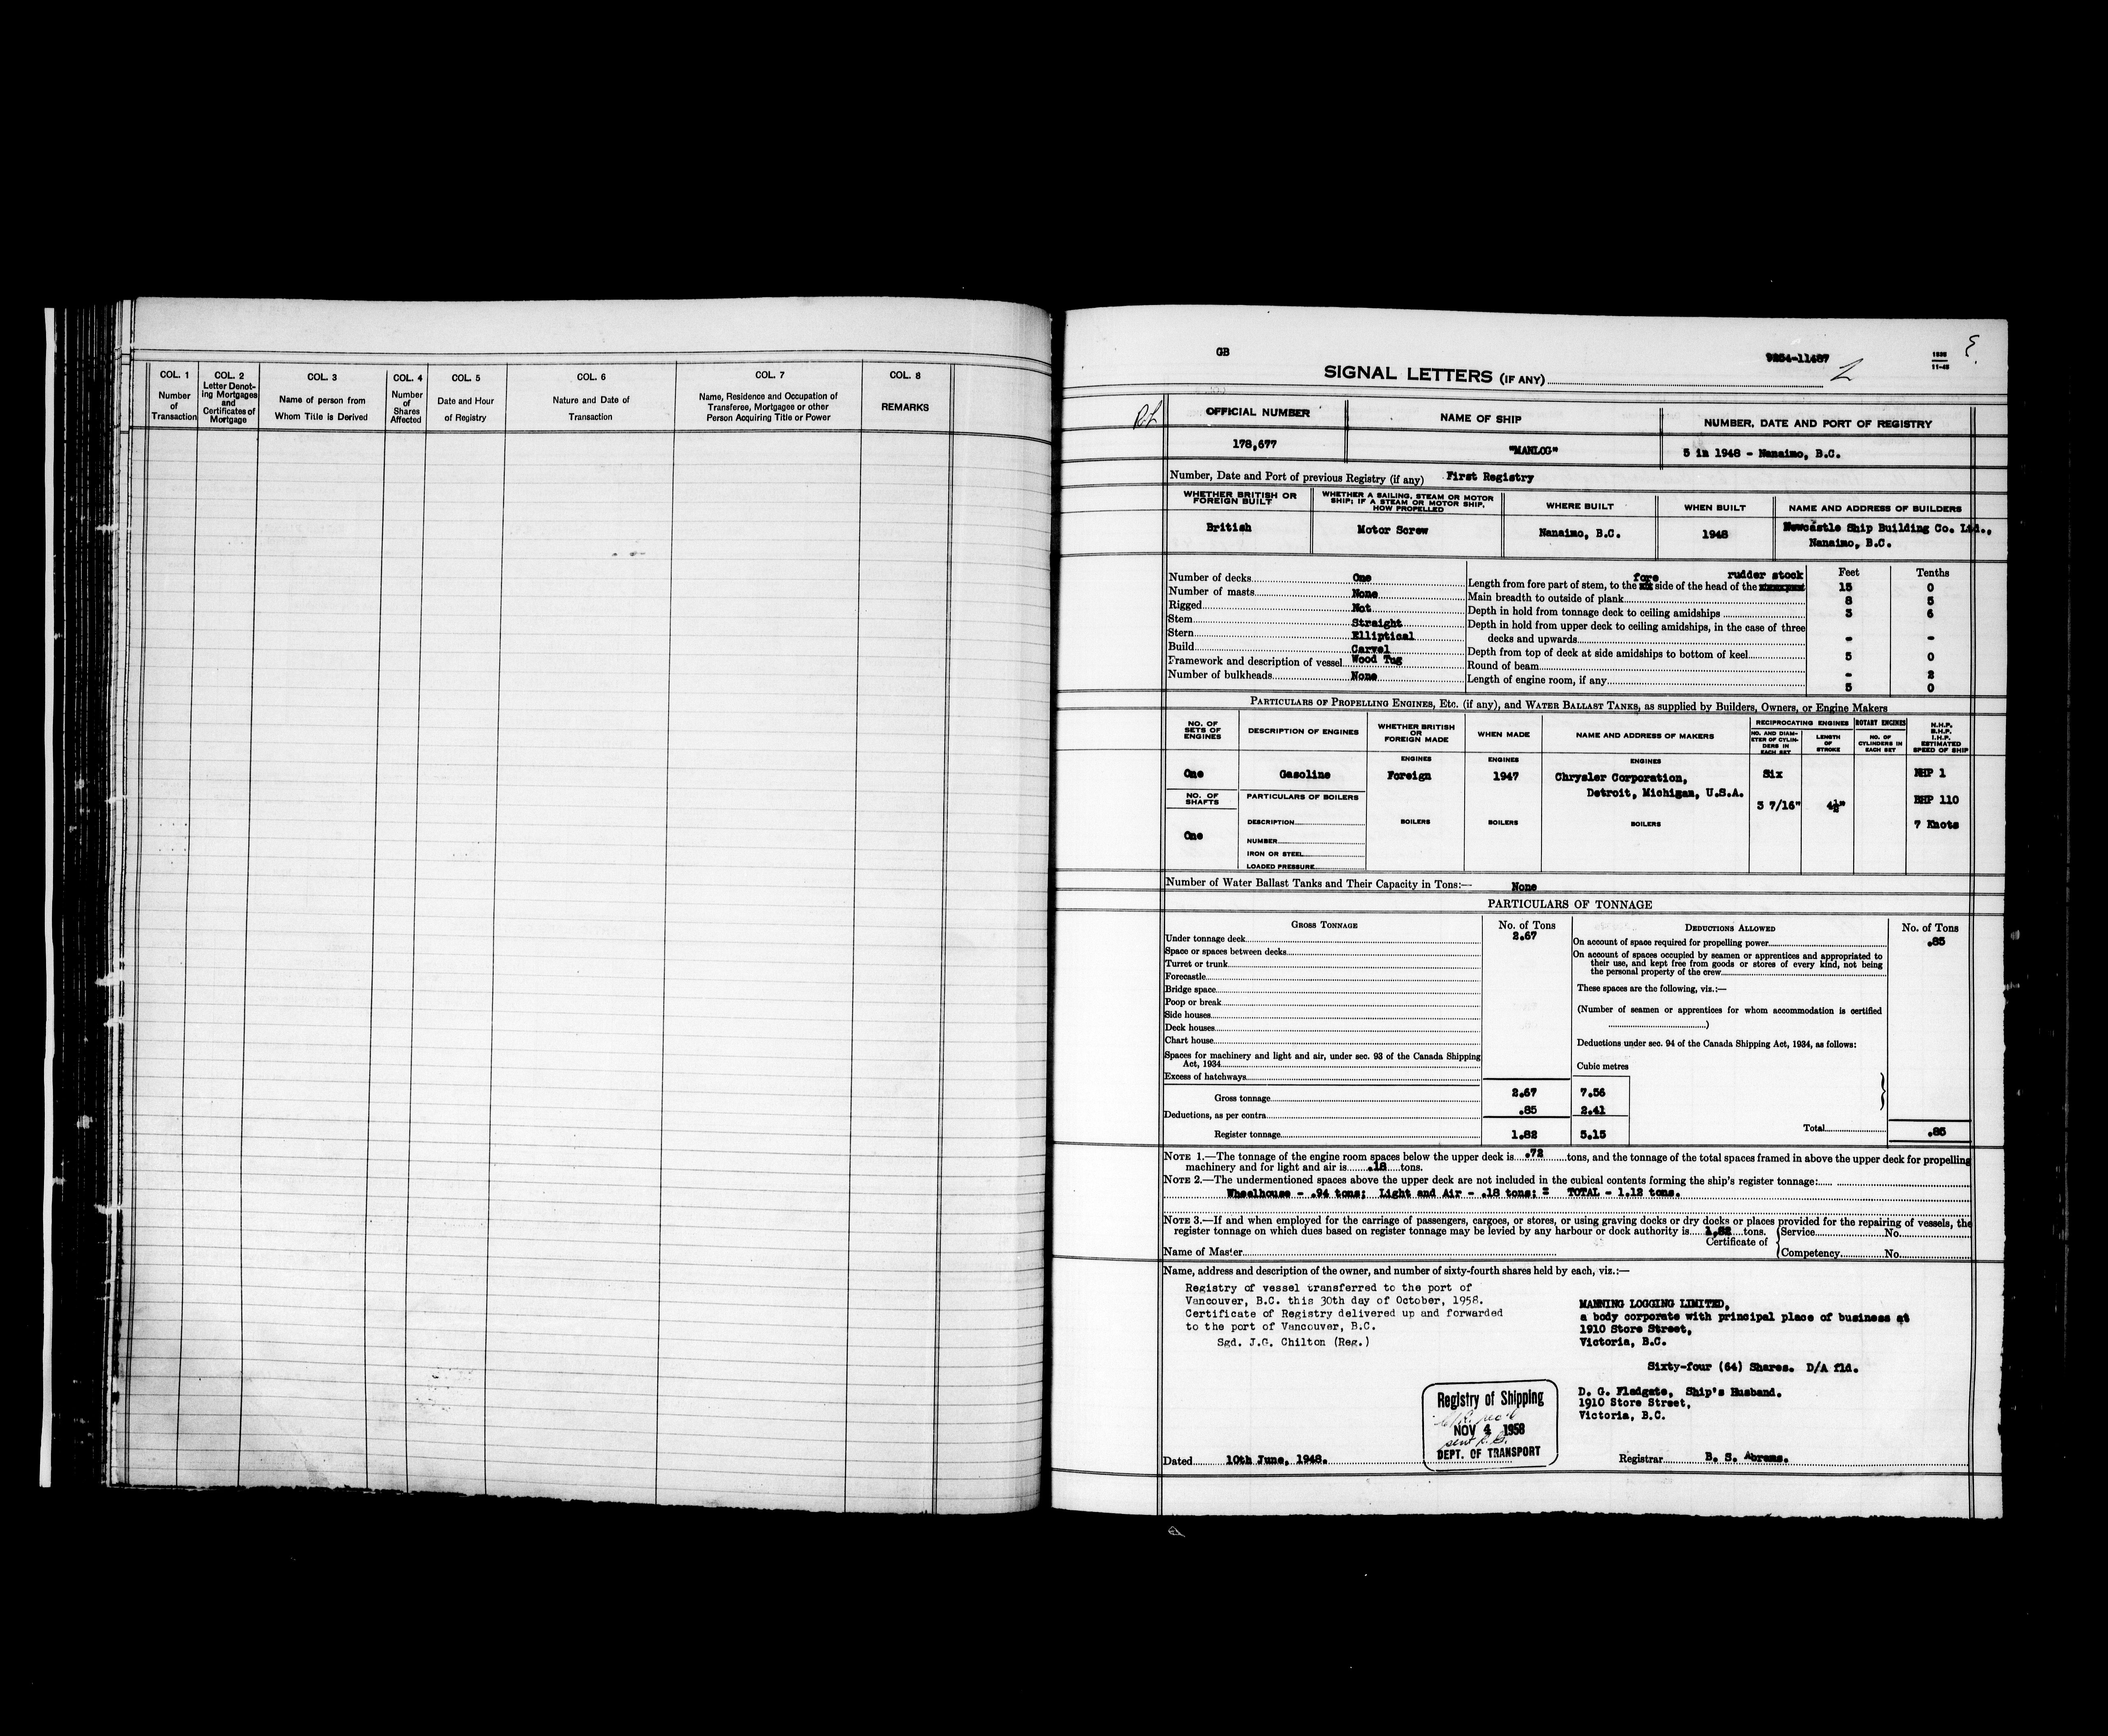 COL. 1
Number
of
Transaction
COL. 2
Letter Denot-
ing Mortgages
and
Certificates of
Mortgage
COL. 3
Name of person from
Whom Title is Derived
COL. 4
Number
of
Shares
Affected
COL. 5
Date and Hour
of Registry
COL. 6
Nature and Date of
Transaction
COL. 7
Name, Residence and Occupation of
Transferee, Mortgagee or other
Person Acquiring Title or Power
COL. 8
REMARKS
GB
9254-11487
SIGNAL LETTERS (IF ANY)
OFFICIAL NUMBER NAME OF SHIP NUMBER, DATE AND PORT OF REGISTRY
178,677 "MANLOG" 5 in 1948 - Nanaimo, B.C.
Number, Date and Port of previous Registry (if any) First Registry
WHETHER BRITISH OR
FOREIGN BUILT
WHETHER A SAILING, STEAM OR MOTOR
SHIP; IF A STEAM OR MOTOR SHIP,
HOW PROPELLED
WHERE BUILT
WHEN BUILT
NAME AND ADDRESS OF BUILDERS
British Motor Screw Nanaimo, B.C. 1948
Newcastle Ship Building Co. Ltd.,
Nanaimo, B.C.
Number of decks One
Number of masts None
Rigged Not
Stem Straight
Stern Elliptical
Build Carvel
Framework and description of vessel Wood Tug
Number of bulkheads None
Feet Tenths
fore rudder stock
Length from fore part of stem, to the side of the head of the 15 0
Main breadth to outside of plank 8 5
Depth in hold from tonnage deck to ceiling amidships 3 6
Depth in hold from upper deck to ceiling amidships, in the case of three
decks and upwards - -
Depth from top of deck at side amidships to bottom of keel 5 0
Round of beam - 2
Length of engine room, if any 5 0
PARTICULARS OF PROPELLING ENGINES, ETC. (if any), and WATER BALLAST TANKS, as supplied by Builders, Owners, or Engine Makers
NO. OF
SETS OF
ENGINES
DESCRIPTION OF ENGINES
WHETHER BRITISH
OR
FOREIGN MADE
WHEN MADE
NAME AND ADDRESS OF MAKERS
RECIPROCATING ENGINES
NO. AND DIAM-
ETER OF CYLIN-
DERS IN
EACH SET
LENGTH
OF
STROKE
ROTARY ENGINES
NO. OF
CYLINDERS IN
EACH SET
N.H.P.
B.H.P.
I.H.P.
ESTIMATED
SPEED OF SHIP
ENGINES ENGINES ENGINES
One Gasoline Foreign 1947 Chrysler Corporation, Six NHP 1
Detroit, Michigan, U.S.A.
NO. OF
SHAFTS
PARTICULARS OF BOILERS
3 7/16" 4½" BHP 110
DESCRIPTION BOILERS BOILERS BOILERS 7 Knots
One
NUMBER
IRON OR STEEL
LOADED PRESSURE
Number of Water Ballast Tanks and Their Capacity in Tons:— None
PARTICULARS OF TONNAGE
GROSS TONNAGE No. of Tons
Under tonnage deck 2.67
Space or spaces between decks
Turret or trunk
Forecastle
Bridge space
Poop or break
Side houses
Deck houses
Chart house
Spaces for machinery and light and air, under sec. 93 of the Canada Shipping
Act, 1934
Excess of hatchways
Gross tonnage 2.67 7.56
Deductions, as per contra .85 2.41
Register tonnage 1.82 5.15
DEDUCTIONS ALLOWED No. of Tons
On account of space required for propelling power .85
On account of spaces occupied by seamen or apprentices and appropriated to
their use, and kept free from goods or stores of every kind, not being
the personal property of the crew
These spaces are the following, viz.:—
(Number of seamen or apprentices for whom accommodation is certified
)
Deductions under sec. 94 of the Canada Shipping Act, 1934, as follows:
Cubic metres
Total .85
NOTE 1.—The tonnage of the engine room spaces below the upper deck is .72 tons, and the tonnage of the total spaces framed in above the upper deck for propelling
machinery and for light and air is .18 tons.
NOTE 2.—The undermentioned spaces above the upper deck are not included in the cubical contents forming the ship's register tonnage:
Wheelhouse - .94 tons; Light and Air - .18 tons; = TOTAL - 1.12 tons.
NOTE 3.—If and when employed for the carriage of passengers, cargoes, or stores, or using graving docks or dry docks or places provided for the repairing of vessels, the
register tonnage on which dues based on register tonnage may be levied by any harbour or dock authority is 1.82 tons.
Certificate of
Service No.
Competency No.
Name of Master
Name, address and description of the owner, and number of sixty-fourth shares held by each, viz.:—
Registry of vessel transferred to the port of
Vancouver, B.C. this 30th day of October, 1958.
Certificate of Registry delivered up and forwarded
to the port of Vancouver, B.C.
Sgd. J.G. Chilton (Reg.)
MANNING LOGGING LIMITED,
a body corporate with principal place of business at
1910 Store Street,
Victoria, B.C.
Sixty-four (64) Shares. D/A fld.
D. G. Fladgate, Ship's Husband.
1910 Store Street,
Victoria, B.C.
Registry of Shipping
NOV 4 1958
DEPT. OF TRANSPORT
Dated 10th June, 1948.
Registrar B. S. Abrams.